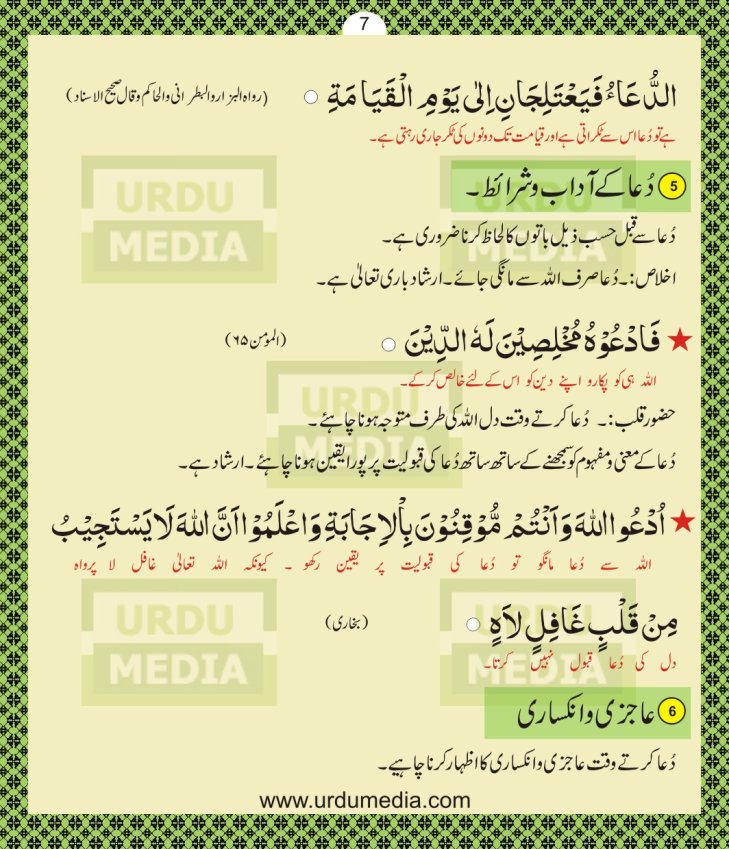 7
الدُّعَاءُ فَيَعْتَلِجَانِ اِلٰى يَوْمِ الْقَيَامَةِ ○ (رواہ البزار والبطرانی والحاکم وقال صحیح الاسناد)
ہے تو دُعا اس سے ٹکراتی ہے اور قیامت تک دونوں کی ٹکر جاری رہتی ہے۔
5 دُعا کے آداب و شرائط۔
دُعا سے قبل حسب ذیل باتوں کا لحاظ کرنا ضروری ہے۔
اخلاص:۔ دُعا صرف اللہ سے مانگی جائے۔ ارشاد باری تعالیٰ ہے۔
★ فَادْعُوْهُ مُخْلِصِيْنَ لَهُ الدِّيْنَ ○ (المؤمن ۶۵)
اللہ ہی کو پکارو اپنے دین کو اس کے لئے خالص کر کے۔
حضور قلب:۔ دُعا کرتے وقت دل اللہ کی طرف متوجہ ہونا چاہئے۔
دُعا کے معنی و مفہوم کو سمجھنے کے ساتھ ساتھ دُعا کی قبولیت پر پورا یقین ہونا چاہئے۔ ارشاد ہے۔
★ اُدْعُوا اللهَ وَاَنْتُمْ مُّوْقِنُوْنَ بِاْلاِجَابَةِ وَاعْلَمُوْا اَنَّ اللهَ لَا يَسْتَجِيْبُ
اللہ سے دُعا مانگو تو دُعا کی قبولیت پر یقین رکھو ۔ کیونکہ اللہ تعالیٰ غافل لا پرواہ
مِنْ قَلْبٍ غَافِلٍ لاَهٍ ○ (بخاری)
دل کی دُعا قبول نہیں کرتا۔
6 عاجزی و انکساری
دُعا کرتے وقت عاجزی و انکساری کا اظہار کرنا چاہیے۔
www.urdumedia.com
URDU MEDIA
URDU MEDIA
URDU MEDIA
URDU MEDIA
URDU MEDIA